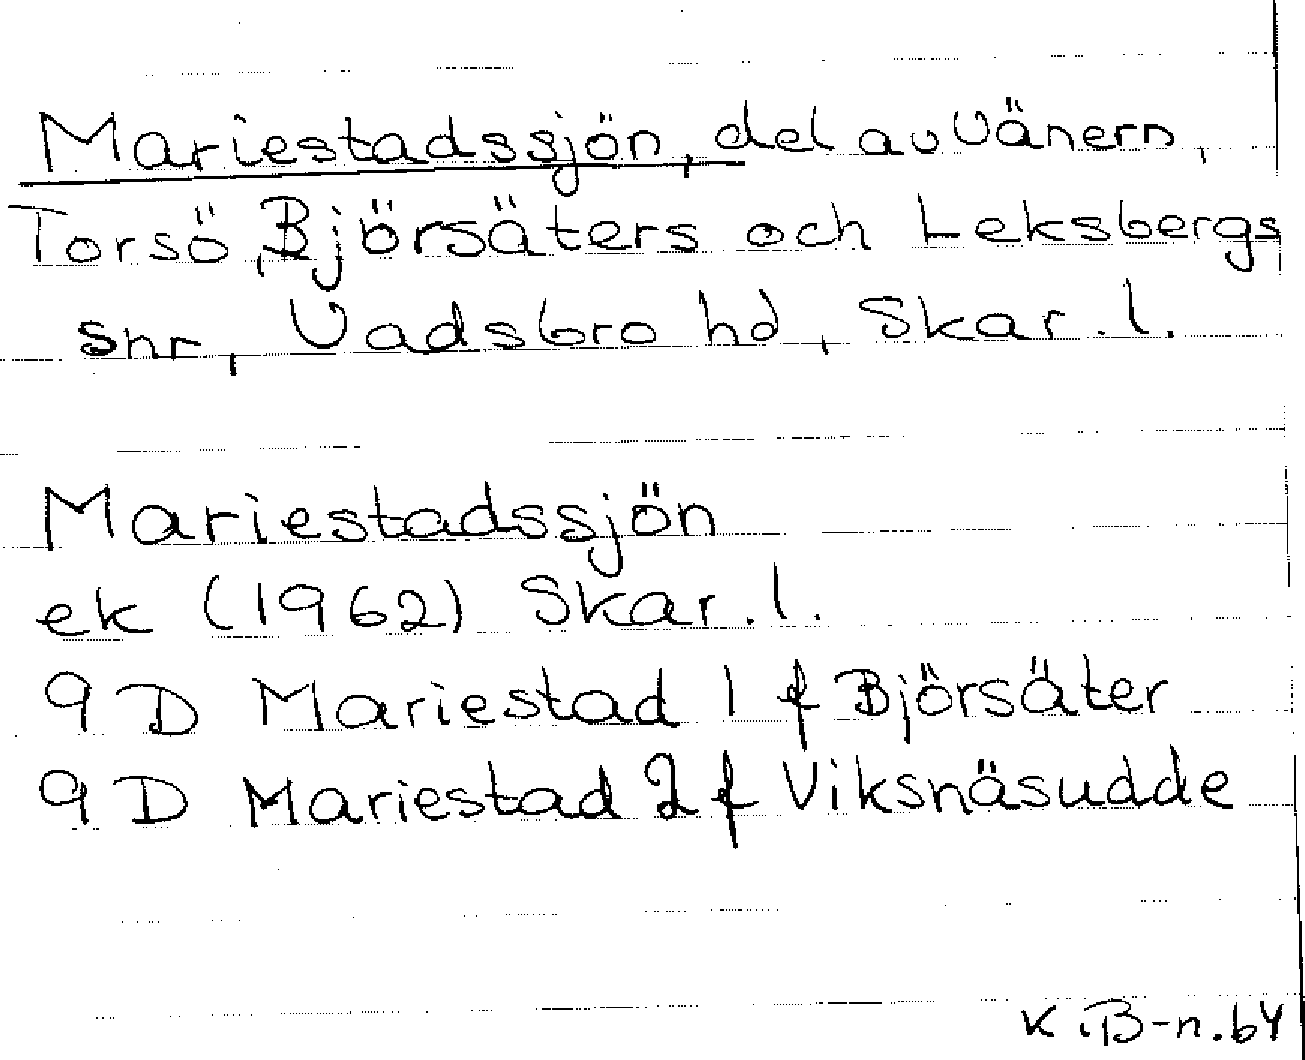 Mariestadssjön, del av Vänern,
Torsö, Björsäters och Leksbergs
snr, Vadsbro hd, Skar. l.
Mariestadssjön
ek (1962) Skar. l.
9 D Mariestad 1 f Björsäter
9 D Mariestad 2 f Viksnäsudde
K. B-n. 64